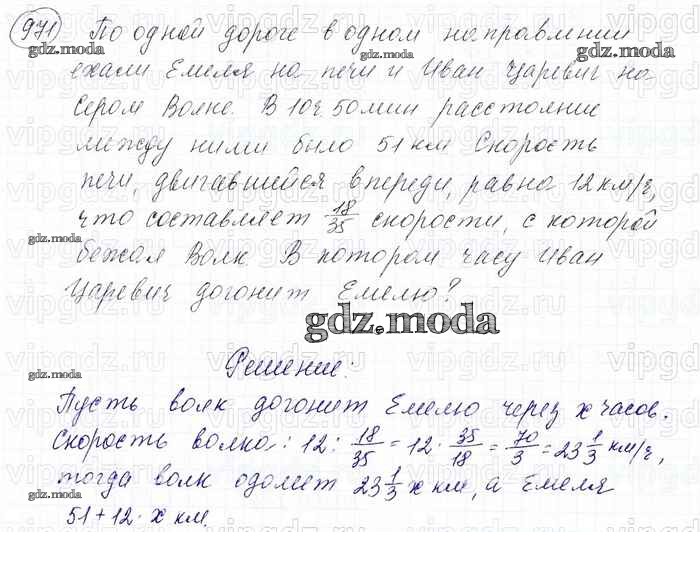 971 По одной дороге в одном направлении
ехали Емеля на печи и Иван Царевич на
Сером Волке. В 10ч. 50мин расстояние
между ними было 51 км Скорость
печи, двигавшейся впереди, равна 12 км/ч,
что составляет 18/35 скорости, с которой
бежал Волк. В котором часу Иван
Царевич догонит Емелю?
gdz.moda
Решение:
Пусть волк догонит Емелю через x часов.
Скорость волка: 12 : 18/35 = 12 · 35/18 = 70/3 = 23 1/3 км/ч,
тогда волк одолеет 23 1/3 x км, а Емеля
51 + 12 · x км.